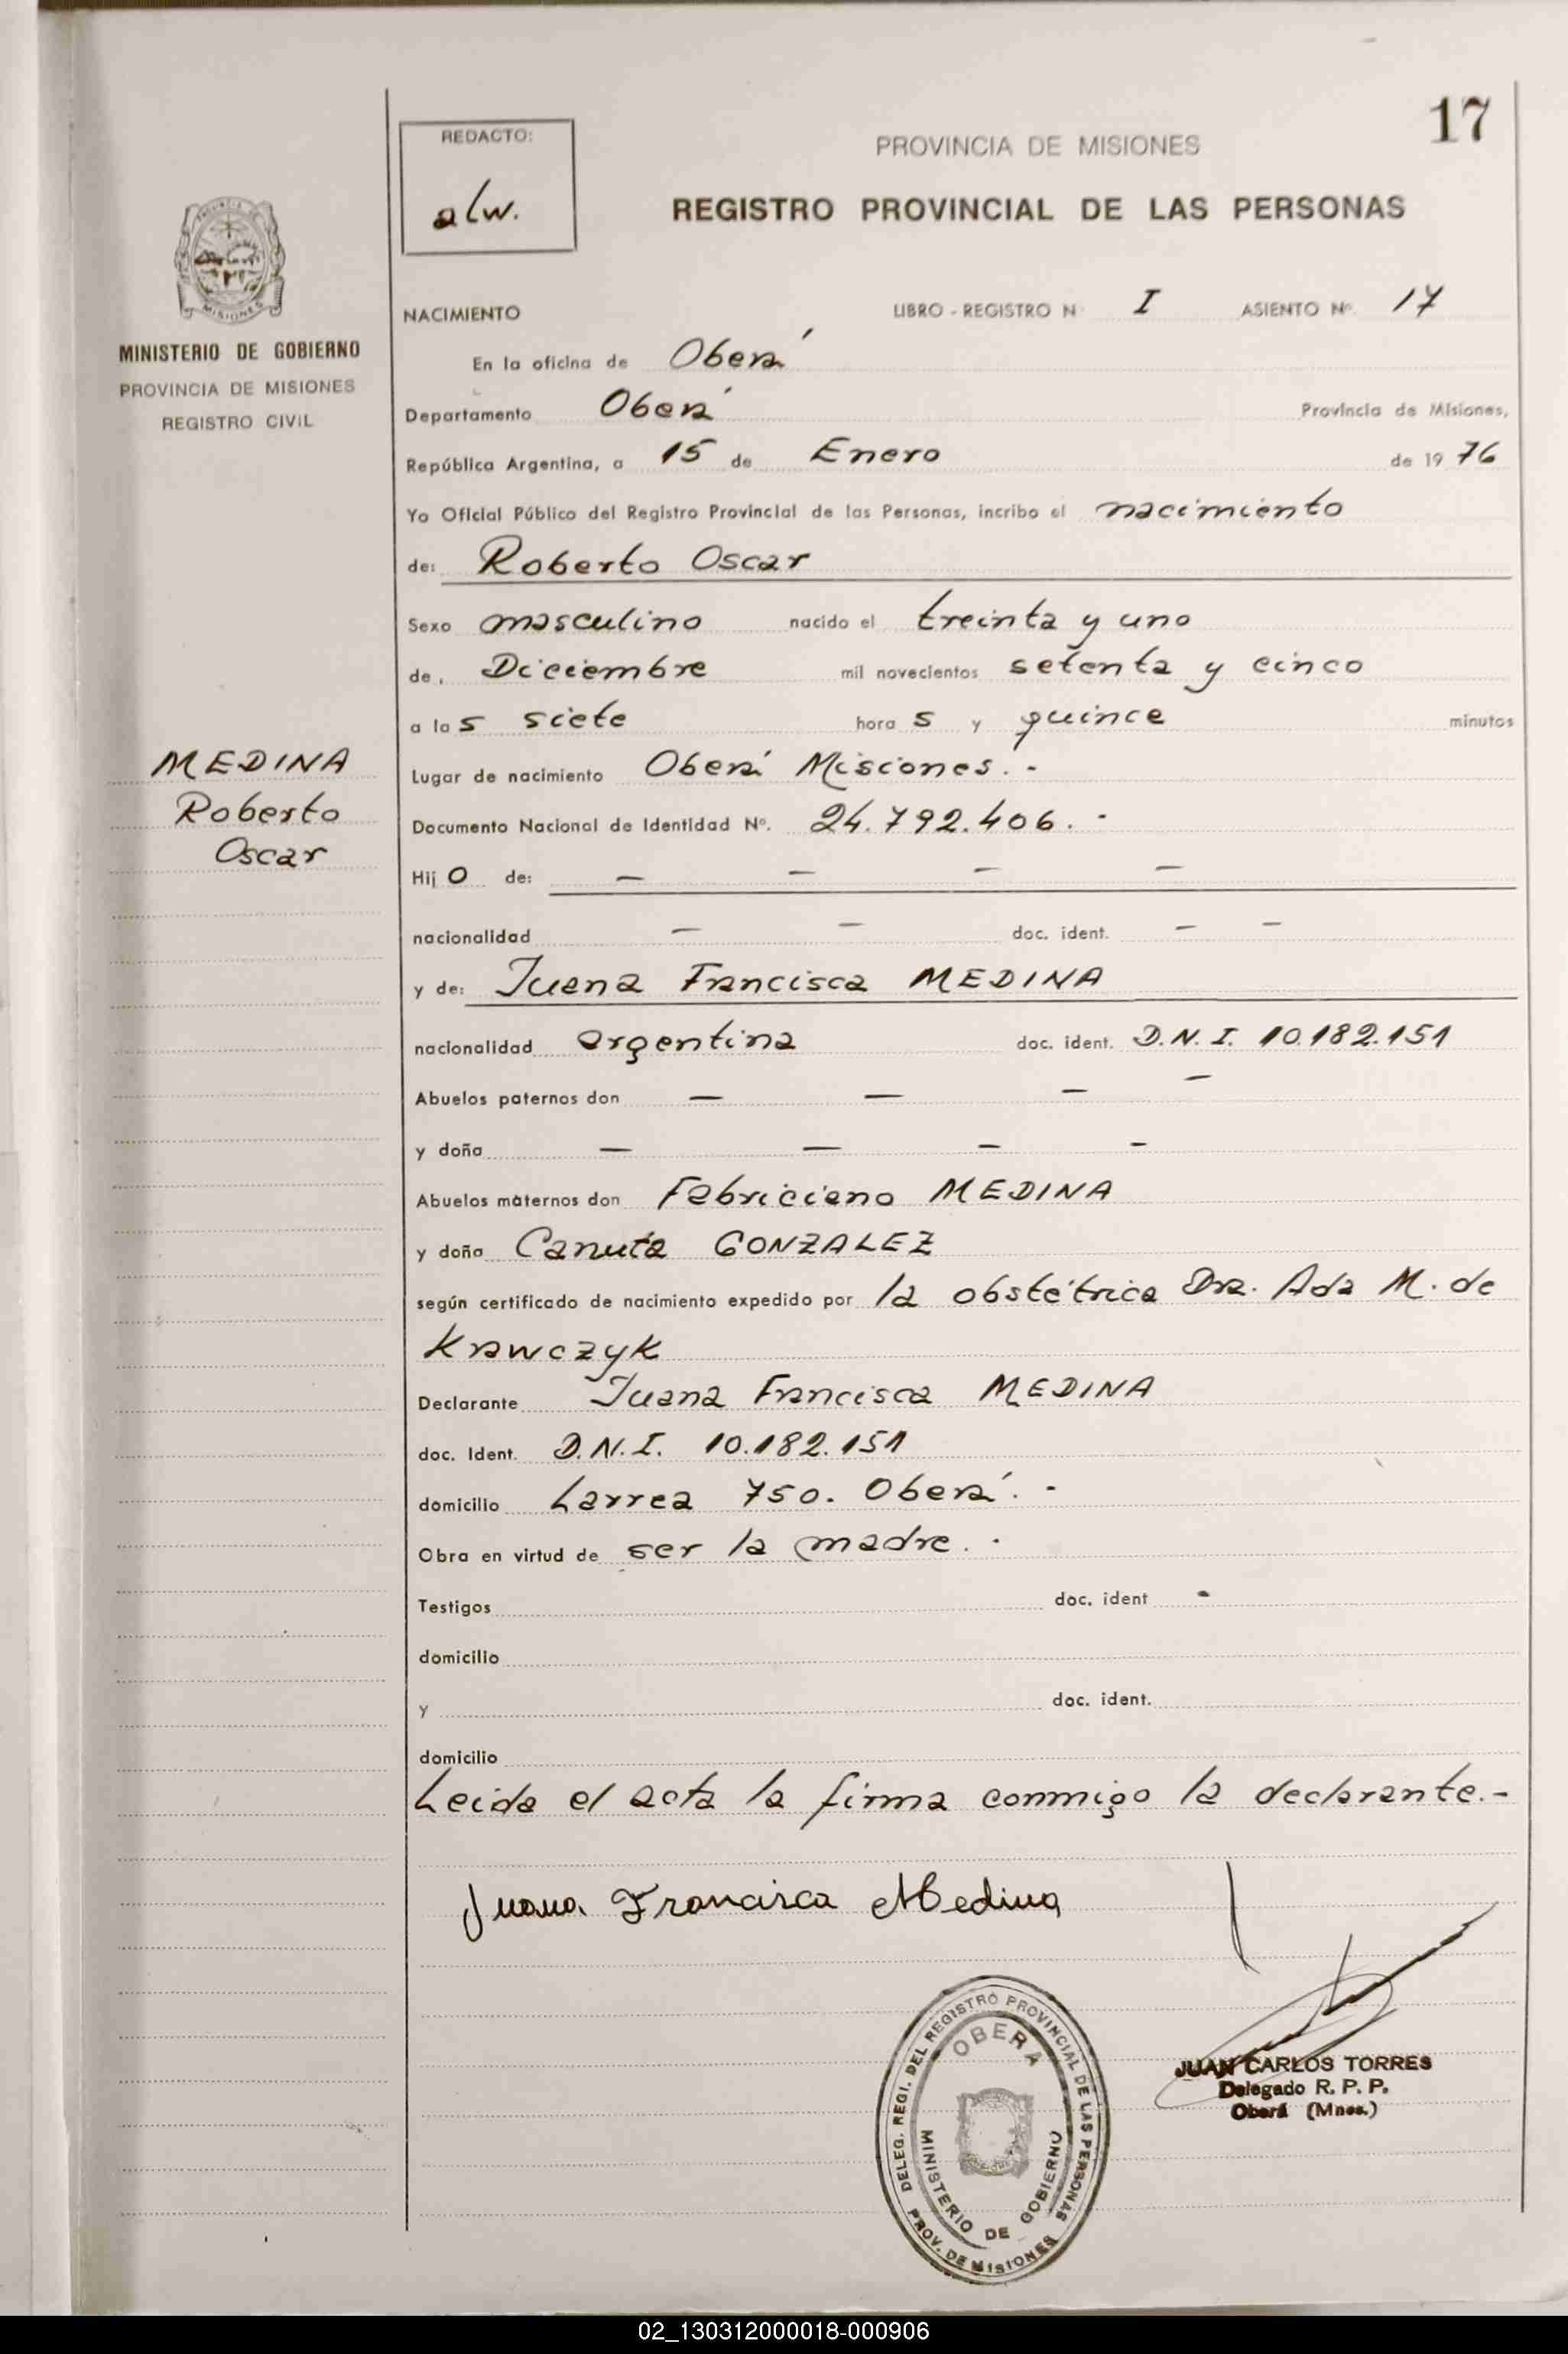 17
REDACTO:
alw.
PROVINCIA DE MISIONES
REGISTRO PROVINCIAL DE LAS PERSONAS
MISIONES
MINISTERIO DE GOBIERNO
PROVINCIA DE MISIONES
REGISTRO CIVIL
NACIMIENTO LIBRO - REGISTRO N° I ASIENTO N° 17
En la oficina de Oberá
Departamento Oberá Provincia de Misiones,
República Argentina, a 15 de Enero de 19 76
Yo Oficial Público del Registro Provincial de las Personas, incribo el nacimiento
de: Roberto Oscar
Sexo masculino nacido el treinta y uno
de Diciembre mil novecientos setenta y cinco
a las siete horas y quince minutos
MEDINA
Roberto
Oscar
Lugar de nacimiento Oberá Misiones. -
Documento Nacional de Identidad N°. 24.792.406. -
Hijo de: — — — —
nacionalidad — — doc. ident. — —
y de: Juana Francisca MEDINA
nacionalidad argentina doc. ident. D.N.I. 10.182.151
Abuelos paternos don — — — —
y doña — — — —
Abuelos maternos don Fabriciano MEDINA
y doña Canuta GONZALEZ
según certificado de nacimiento expedido por la obstétrica Dra. Ada M. de
Krawczyk
Declarante Juana Francisca MEDINA
doc. Ident. D.N.I. 10.182.151
domicilio Larrea 750. Oberá. -
Obra en virtud de ser la madre. -
Testigos doc. ident -
domicilio
y doc. ident.
domicilio
Leida el acta la firma conmigo la declarante.-
Juana Francisca Medina
DELEG. REGI. DEL REGISTRO PROVINCIAL DE LAS PERSONAS
OBERA
MINISTERIO DE GOBIERNO
PROV. DE MISIONES
JUAN CARLOS TORRES
Delegado R. P. P.
Oberá (Mnes.)
02_130312000018-000906